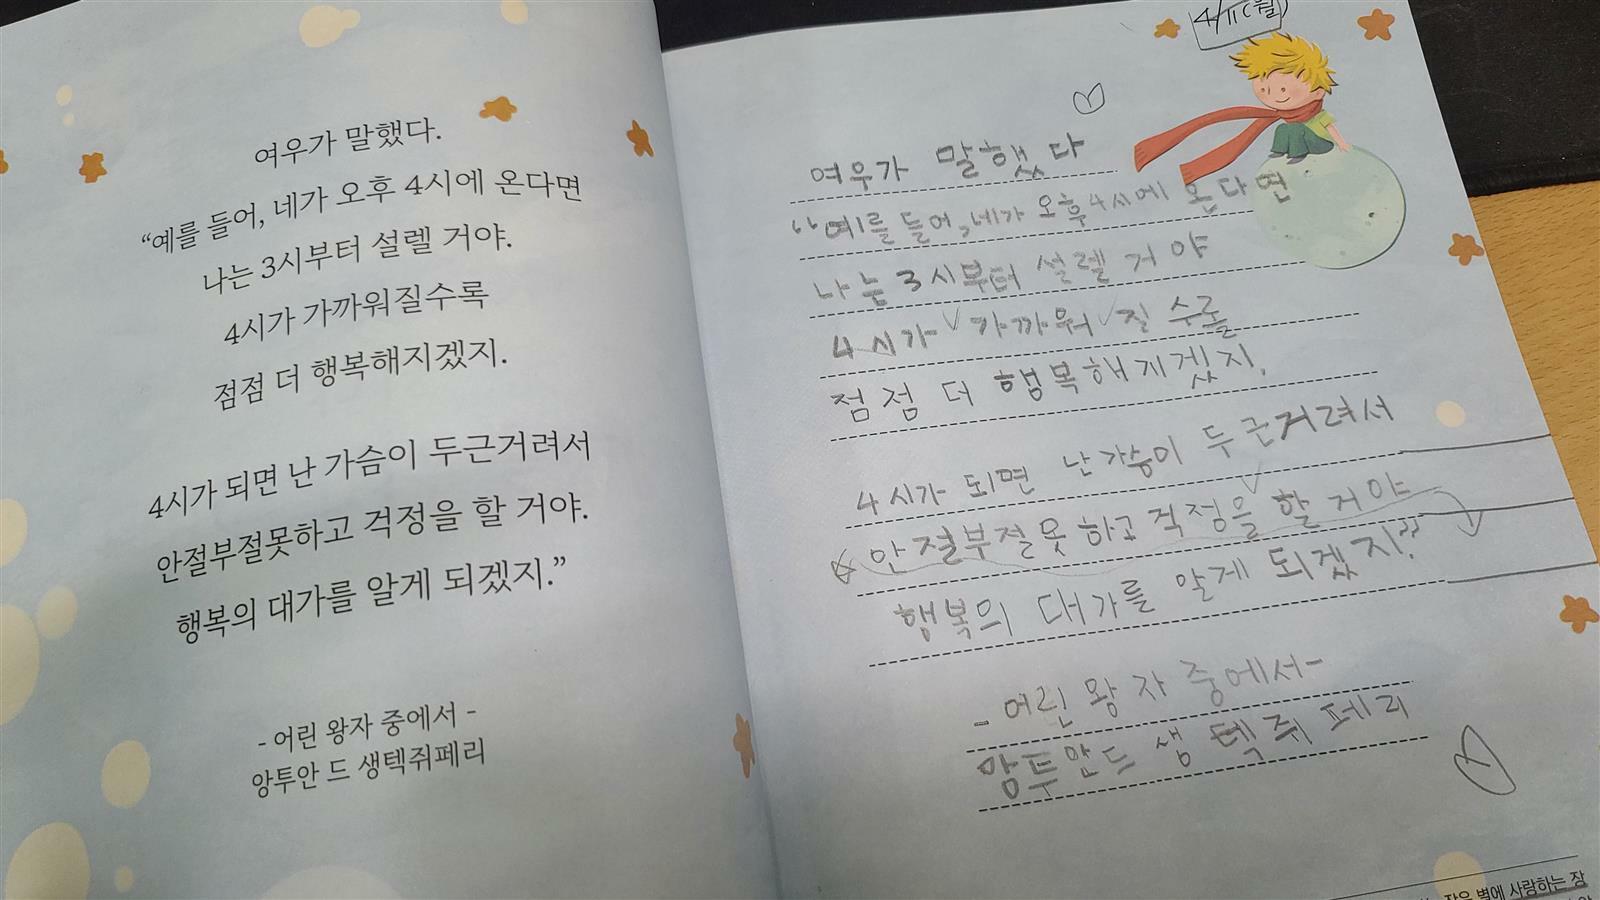 여우가 말했다.
“예를 들어, 네가 오후 4시에 온다면
나는 3시부터 설렐 거야.
4시가 가까워질수록
점점 더 행복해지겠지.
4시가 되면 난 가슴이 두근거려서
안절부절못하고 걱정을 할 거야.
행복의 대가를 알게 되겠지.”
- 어린 왕자 중에서 -
앙투안 드 생텍쥐페리
4/11(월)
여우가 말했다
“예를 들어, 네가 오후 4시에 온다면
나는 3시부터 설렐 거야
4시가 가까워 질 수록
점점 더 행복해지겠지.
4시가 되면 난 가슴이 두근거려서
안절부절못하고 걱정을 할 거야
행복의 대가를 알게 되겠지.”
- 어린 왕자 중에서 -
앙투안드 생텍쥐페리
작은 별에 사랑하는 장